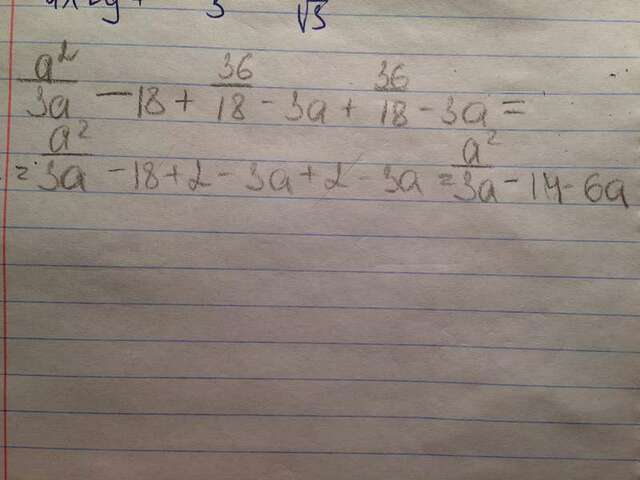 3 √5
a²/3a - 18 + 36/18 - 3a + 36/18 - 3a =
= a²/3a - 18 + 2 - 3a + 2 - 3a = a²/3a - 14 - 6a